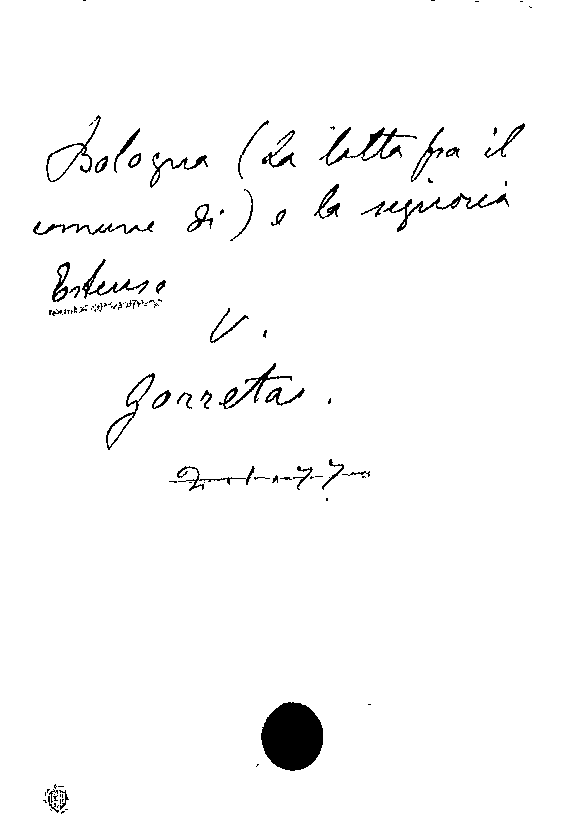 Bologna (La lotta fra il
comune di) e la signoria
Estense
V.
Gorretas.